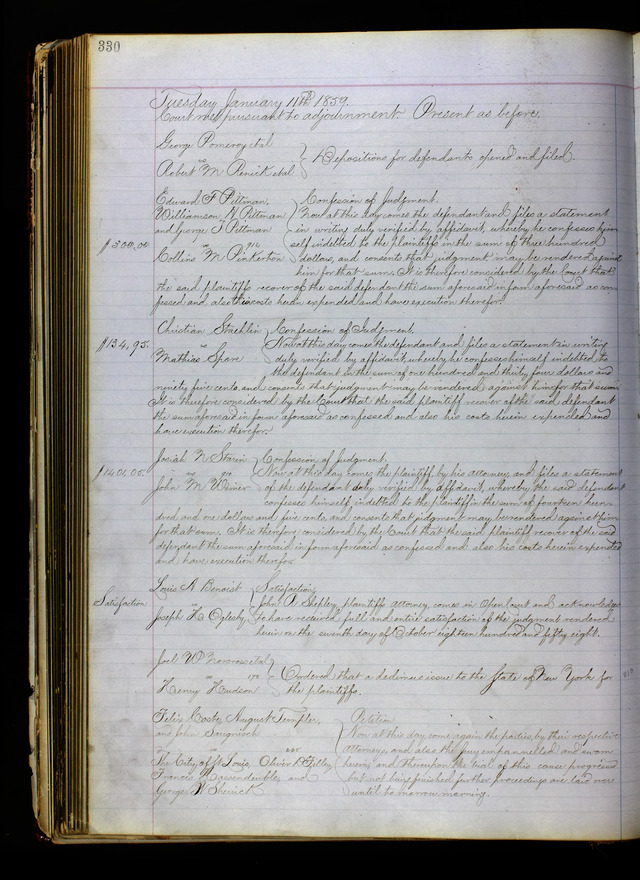 330
Tuesday January 11th 1859.
Court met pursuant to adjournment Present as before.
George Pomeroy etal
vs
Robert M Penick etal
Depositions for defendants opened and filed.
Edward F Pittman, Confession of Judgment.
Williamson H Pittman Now at this day comes the defendant and files a statement
and George T Pittman in writing duly verified by affidavit, whereby he confesses him
$300,00 vs self indebted to the plaintiffs in the sum of three hundred
Collins M Pinkerton dollars, and consents that judgment may be rendered against
him for that sum. It is therefore considered by the Court that
the said plaintiffs recover of the said defendant the sum aforesaid in form aforesaid as con
fessed and also their costs herein expended and have execution therefor.
Christian Confession of Judgment.
$134,95. vs Now at this day comes the defendant and files a statement in writing
Mathias Spore duly verified by affidavit, whereby he confesses himself indebted to
the defendant in the sum of one hundred and thirty four dollars and
ninety five cents and consent that judgment may be rendered against him for that sum
It is therefore considered by the Court that the said plaintiff recover of the said defendant
the sum aforesaid in form aforesaid as confessed and also his costs herein expended and
have execution therefor.
Josiah N Confession of Judgment,
$1401.05. vs Now at this day comes the plaintiff by his attorney, and files a statement
John M Weiner of the defendant duly verified by affidavit, whereby the said defendant
confesses himself indebted to the plaintiff in the sum of fourteen hun-
dred and one dollars and five cents, and consents that judgment may be rendered against him
for that sum. It is therefore considered by the Court that the said plaintiff recover of the said
defendant the sum aforesaid in form aforesaid as confessed and also his costs herein expended
and have execution therefor.
Louis A Benoist Satisfaction,
Satisfaction vs John R Shepley, plaintiffs attorney, comes in Open Court and acknowledges
Joseph H Oglesby To have received full and entire satisfaction of the judgment rendered
herein on the seventh day of October eighteen hundred and fifty eight.
Joel W etal
vs Ordered that a dedimus issue to the State of New York for
Henry Hudson the plaintiffs.
Felix Coste, August Petition
and John Now at this day come again the parties, by their respective
vs attorneys, and also the jury empannelled and sworn
The City of St Louis, Oliver D Filley herein, and thereupon the trial of this cause progressed
Francis and but not being finished further proceedings are laid over
George W until to morrow morning.